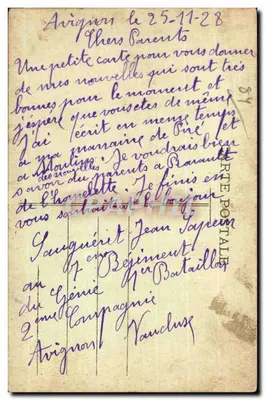 Avignon le 25-11-28
Chers Parents
Une petite carte pour vous donner
de mes nouvelles qui sont très
bonnes pour le moment et
j'éspère que vous etes de même
J'ai écrit en meme temps
a ma marraine de Piré et
a Moulins. Je voudrais bien
savoir des nouvelles des parents a
de Je finis en
vous souhaitant le bonjour
Jean Sapeur
au 7eme Régiment
du Génie 1er Bataillon
2eme Compagnie
Avignon Vaucluse
CARTE POSTALE
84